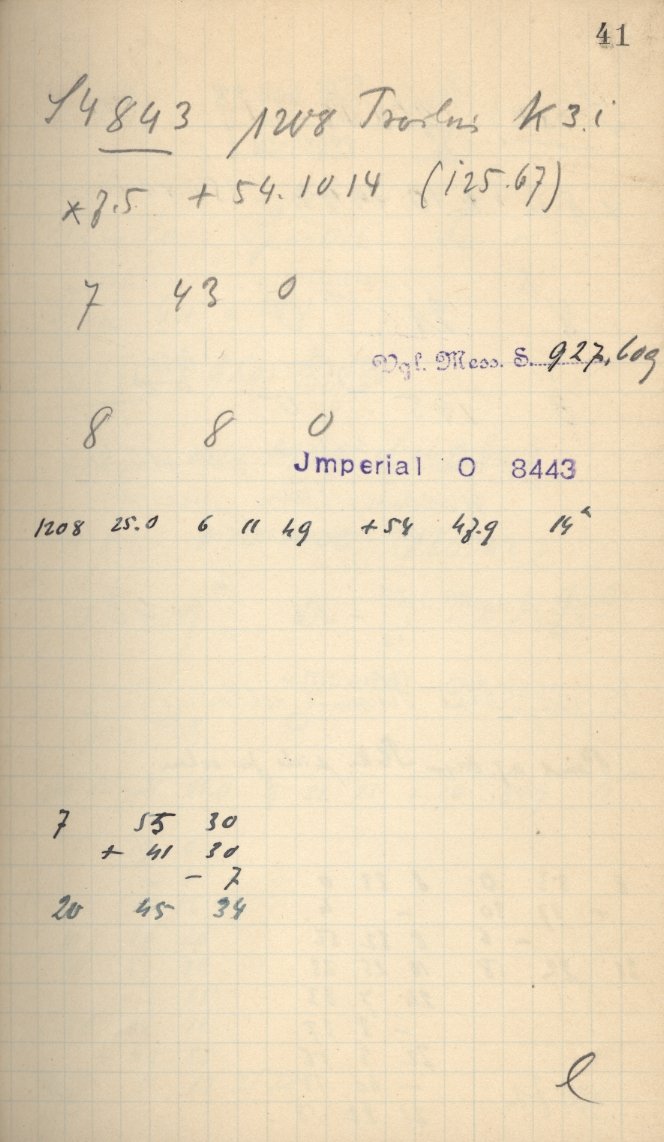 41
S4843 1208 Troilus K3.i
*7.5 + 54. 10 14 (125.67)
7 43 0
Vgl. Mess. S. 927, 609
8 8 0
Jmperial O 8443
1208 25.0 6 11 49 +54 47.9 14ᵃ
7 55 30
+ 41 30
- 7
20 45 34